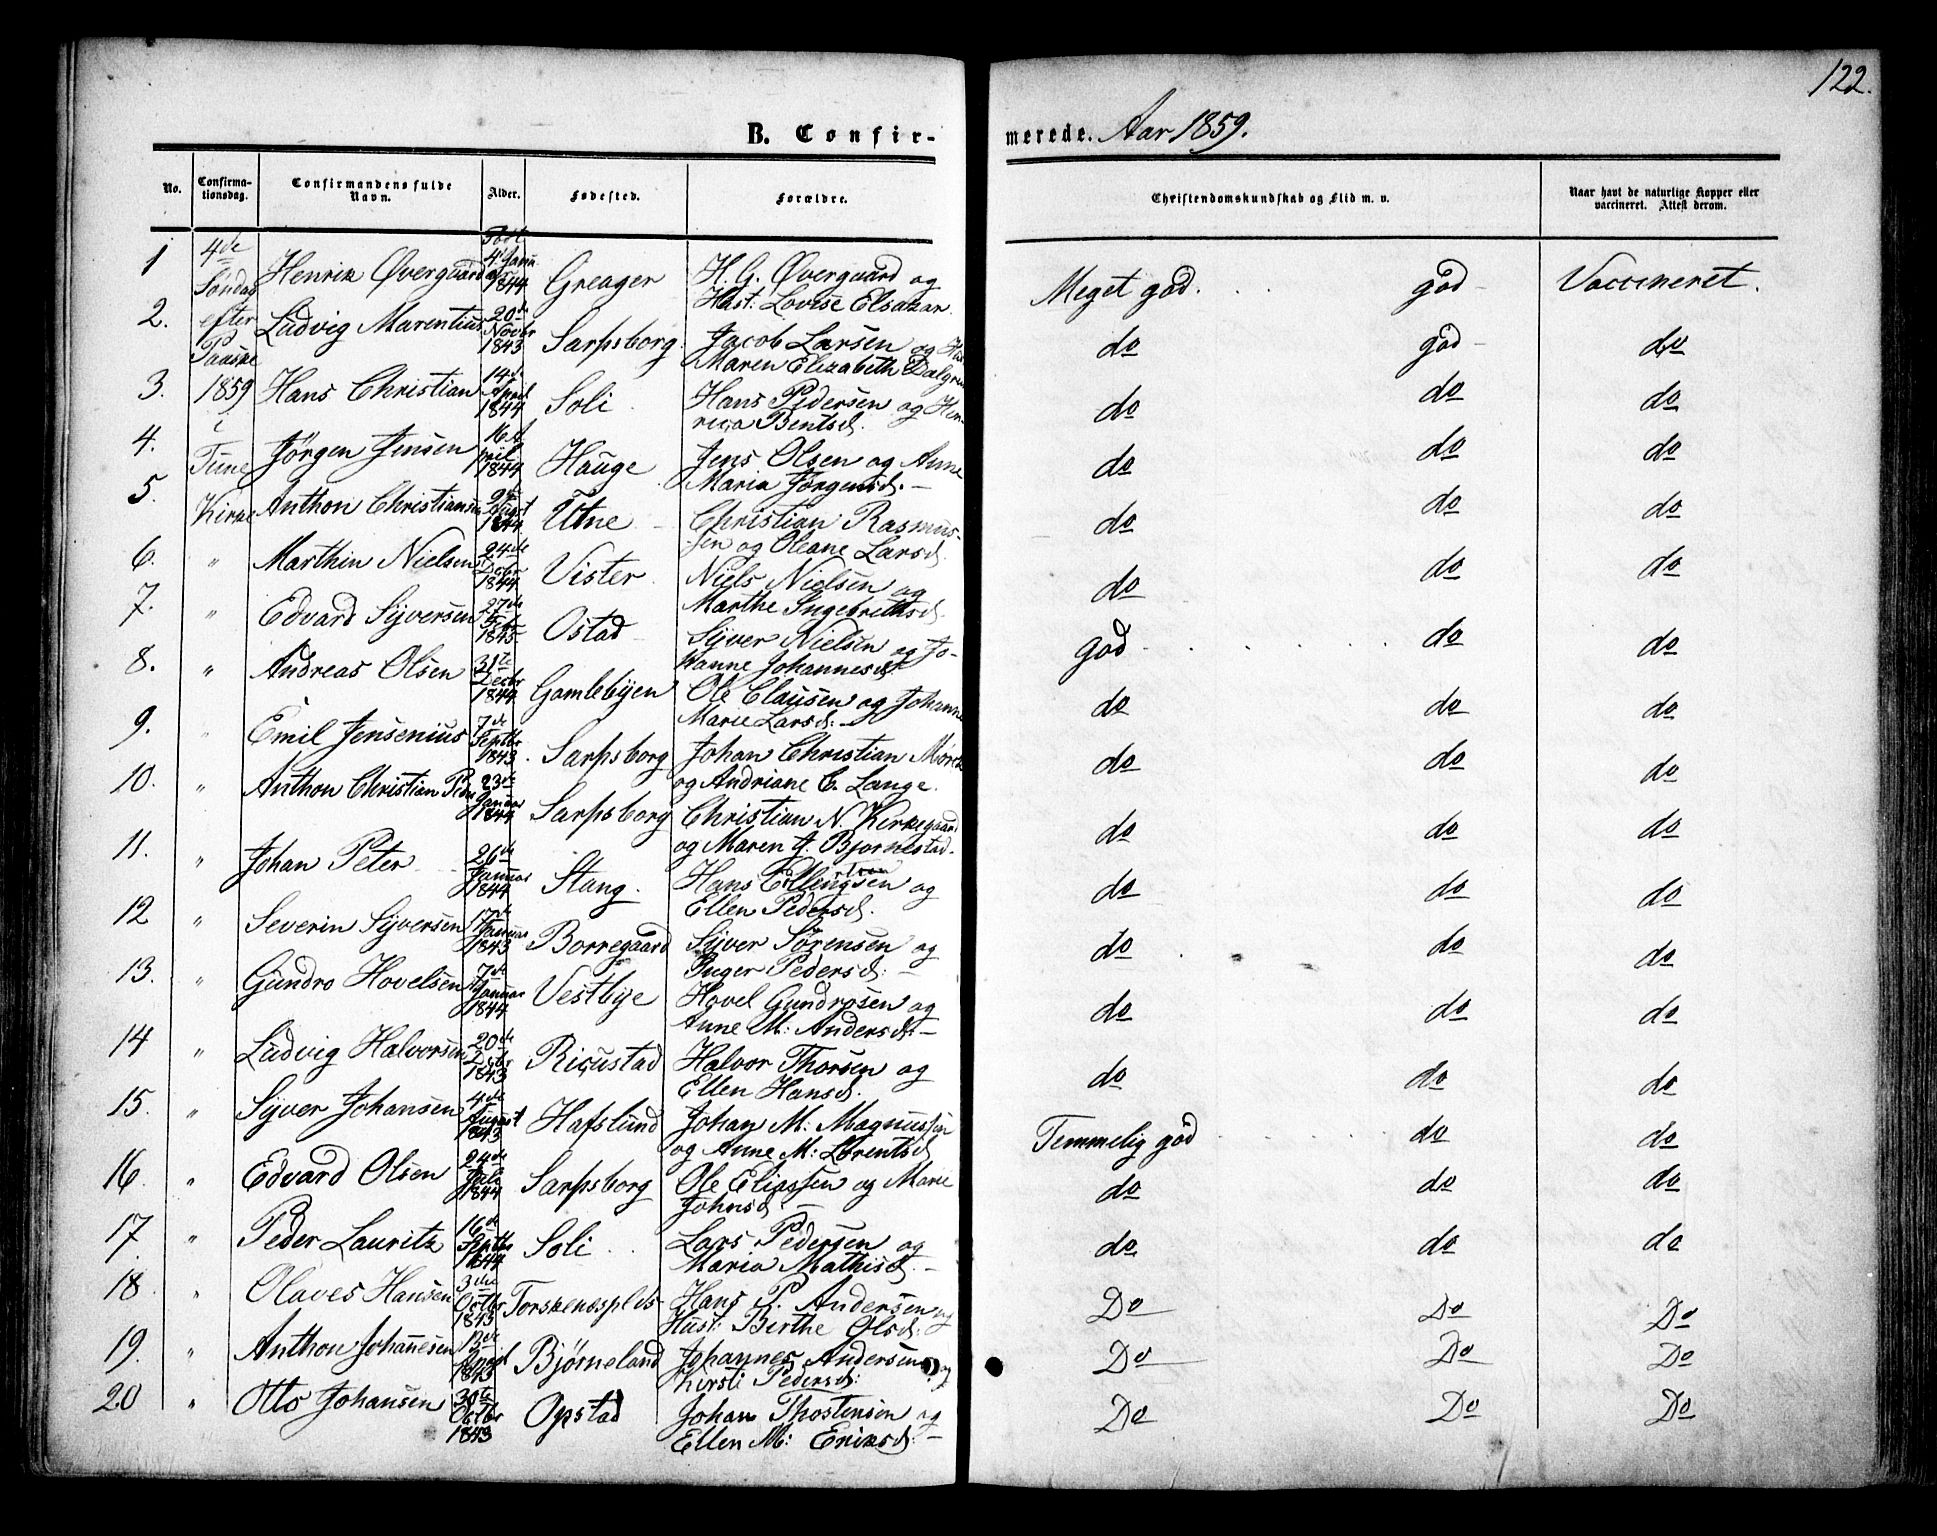 122.
B. Confir-
merede. Aar 1859.
No.
Confirma-
tionsdag.
Confirmandens fulde
Navn.
Alder.
Fødested.
Forældre.
Christendomskundskab og Flid m. v.
Naar havt de naturlige Kopper eller
vaccineret. Attest derom.
4de
Søndag
efter
Paaske
1859
i
Tune
Kirke
1 Henrik Øvergaard Født 4 Janu 1844 Greager H. G. Øvergaard og
Hust. Lovise Elsabar. Meget god. god - Vaccineret.
2. Ludvig Marentius 20de Novbr 1843 Sarpsborg. Jacob Larsen og Hus
Maren Elizabeth Dalgren do god - do
3. Hans Christian 14de April 1844 Soli. Hans Pedersen og Hen-
rica Bentsd. do do do
4. Jørgen Jensen 16 April 1844 Hauge. Jens Olsen og Anne
Maria Jørgensd. - do do do
5. Anthon Christiansen August 1844 Utne - Christian Rasmus-
sen og Oleane Larsd. do do do
6. " Marthin Nielsen 24de Octbr 1844 Vister. Niels Nielsen og
Marthe Ingebretsd. do do do
7. " Edvard Syversen 27de Feb 1845 Ostad - Syver Nielsen og Jo-
hanne Johannesd. god do do
8. " Andreas Olsen 31te Decbr 1844 Gamlebyen Ole Clausen og Johanne
Marie Larsd. - do do do
9. " Emil Jensenius 7de Septbr 1843. Sarpsborg Johan Christian
og Andriane C. Lange. do do do
10. " Anthon Christian Pedr 23de Januar 1844 Sarpsborg Christian N. Kirkegaard
og Maren J. Bjornestad. do do do
11. " Johan Peter 26de Januar 1844 Stang. Hans Ellingsen og
Ellen Pedersd. do do do
12 " Severin Syversen 17de Januar 1843 Borregaard Syver Sørensen og
Inger Pedersd: - do do do
13. " Gundro Hovelsen 7de Januar 1844 Vestbye Hovel Gundrosen og
Anne M: Andersd: - do do do
14 " Ludvig Halvorsen 20de Octbr 1843 Halvor Thorsen og
Ellen Hansd. do do do
15. " Syver Johansen 4de August 1843 Hafslund Johan M: Magnussen
og Anne M: Lorentsd Temmelig god do do
16. " Edvard Olsen 24de Juli 1844 Sarpsborg Ole Eliassen og Marie
Johnsd. - do do do
17. " Peder Lauritz 16de Septbr 1844 Soli. Lars Pedersen og
Maria Mathisd. - do do do
18. " Olaves Hansen 3die Octbr 1843 Hans P. Andersen og
Hust: Birthe Olsd: Do Do Do
19. " Anthon Johannesen 12de August 1843 Bjørneland Johannes Andersen og
Kirsti Pedersd: Do Do Do
20 " Otto Johansen 30te Octbr 1843 Opstad Johan Thostensen og
Ellen M: Eriksd: - Do Do Do